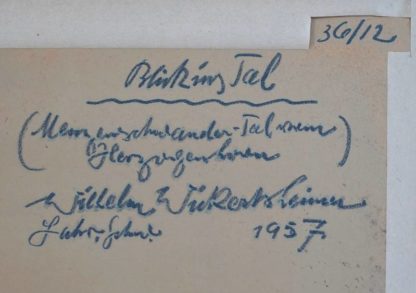 36/12
Blick ins Tal
(Menzenschwander-Tal vom
Herzogenhorn)
Wilhelm Wickertsheimer
Lahr, Schw.
1957